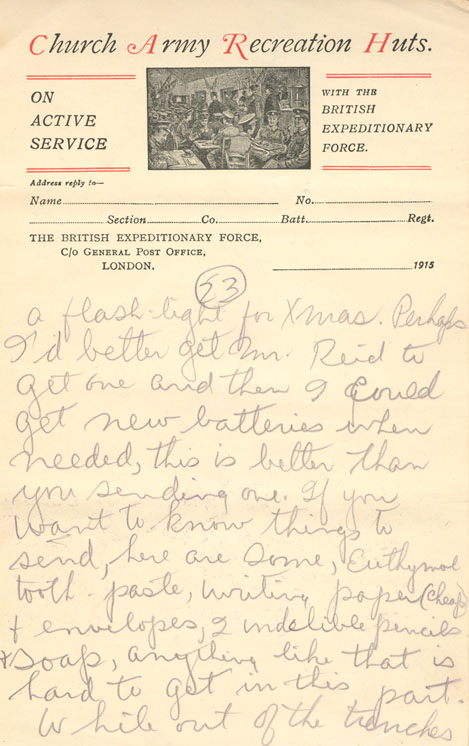 Church Army Recreation Huts.
ON
ACTIVE
SERVICE
WITH THE
BRITISH
EXPEDITIONARY
FORCE.
Address reply to—
Name No.
Section Co. Batt. Regt.
THE BRITISH EXPEDITIONARY FORCE,
C/o GENERAL POST OFFICE,
LONDON.
1915
a flash-light for Xmas. Perhaps
I'd better get Mr. Reid to
get one and then I could
get new batteries when
needed, this is better than
you sending one. If you
want to know things to
send, here are some, Euthymol
tooth-paste, writing paper (cheap)
+ envelopes, 2 indelible pencils
+ soap, anything like that is
hard to get in this part.
While out of the trenches